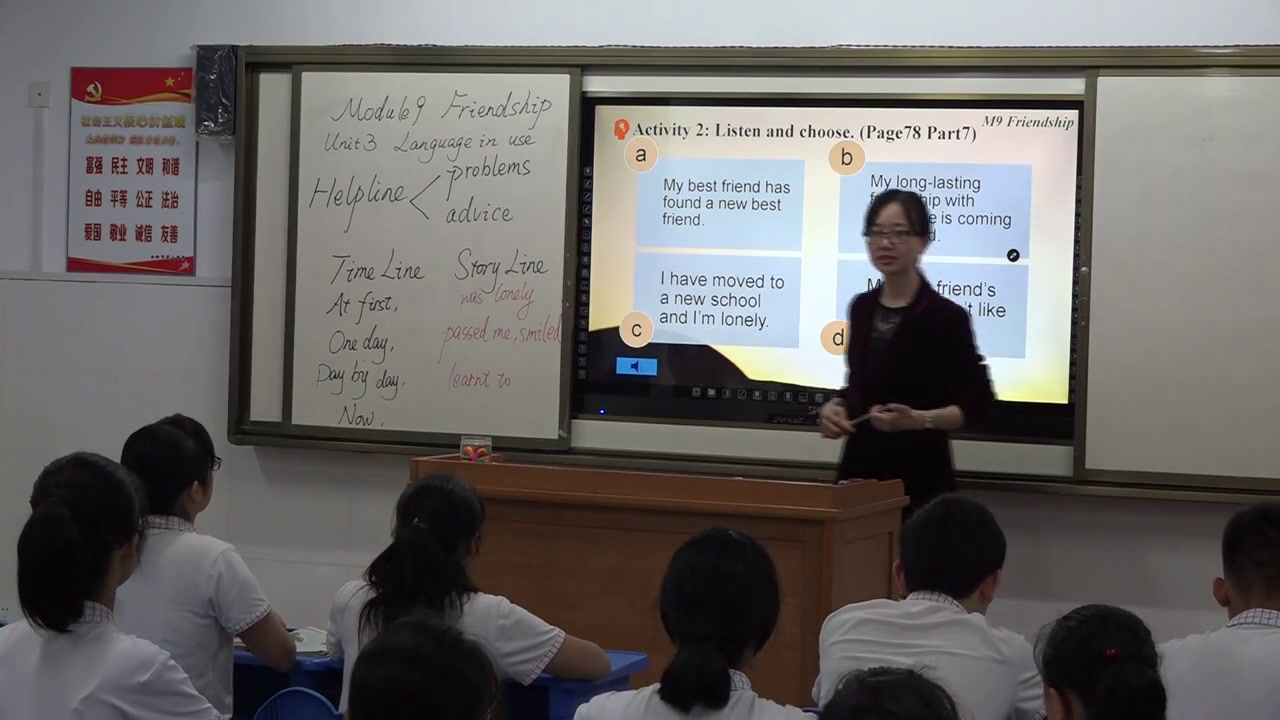 社会主义核心价值观
富强 民主 文明 和谐
自由 平等 公正 法治
爱国 敬业 诚信 友善
Module 9 Friendship
Unit 3 Language in use
Helpline < problems
advice
Time Line Story Line
At first, was lonely
One day, passed me, smiled
Day by day, learnt to
Now,
M9 Friendship
Activity 2: Listen and choose. (Page78 Part7)
a
My best friend has
found a new best
friend.
b
My long-lasting
with
is coming
c
I have moved to
a new school
and I'm lonely.
d
friend's
like